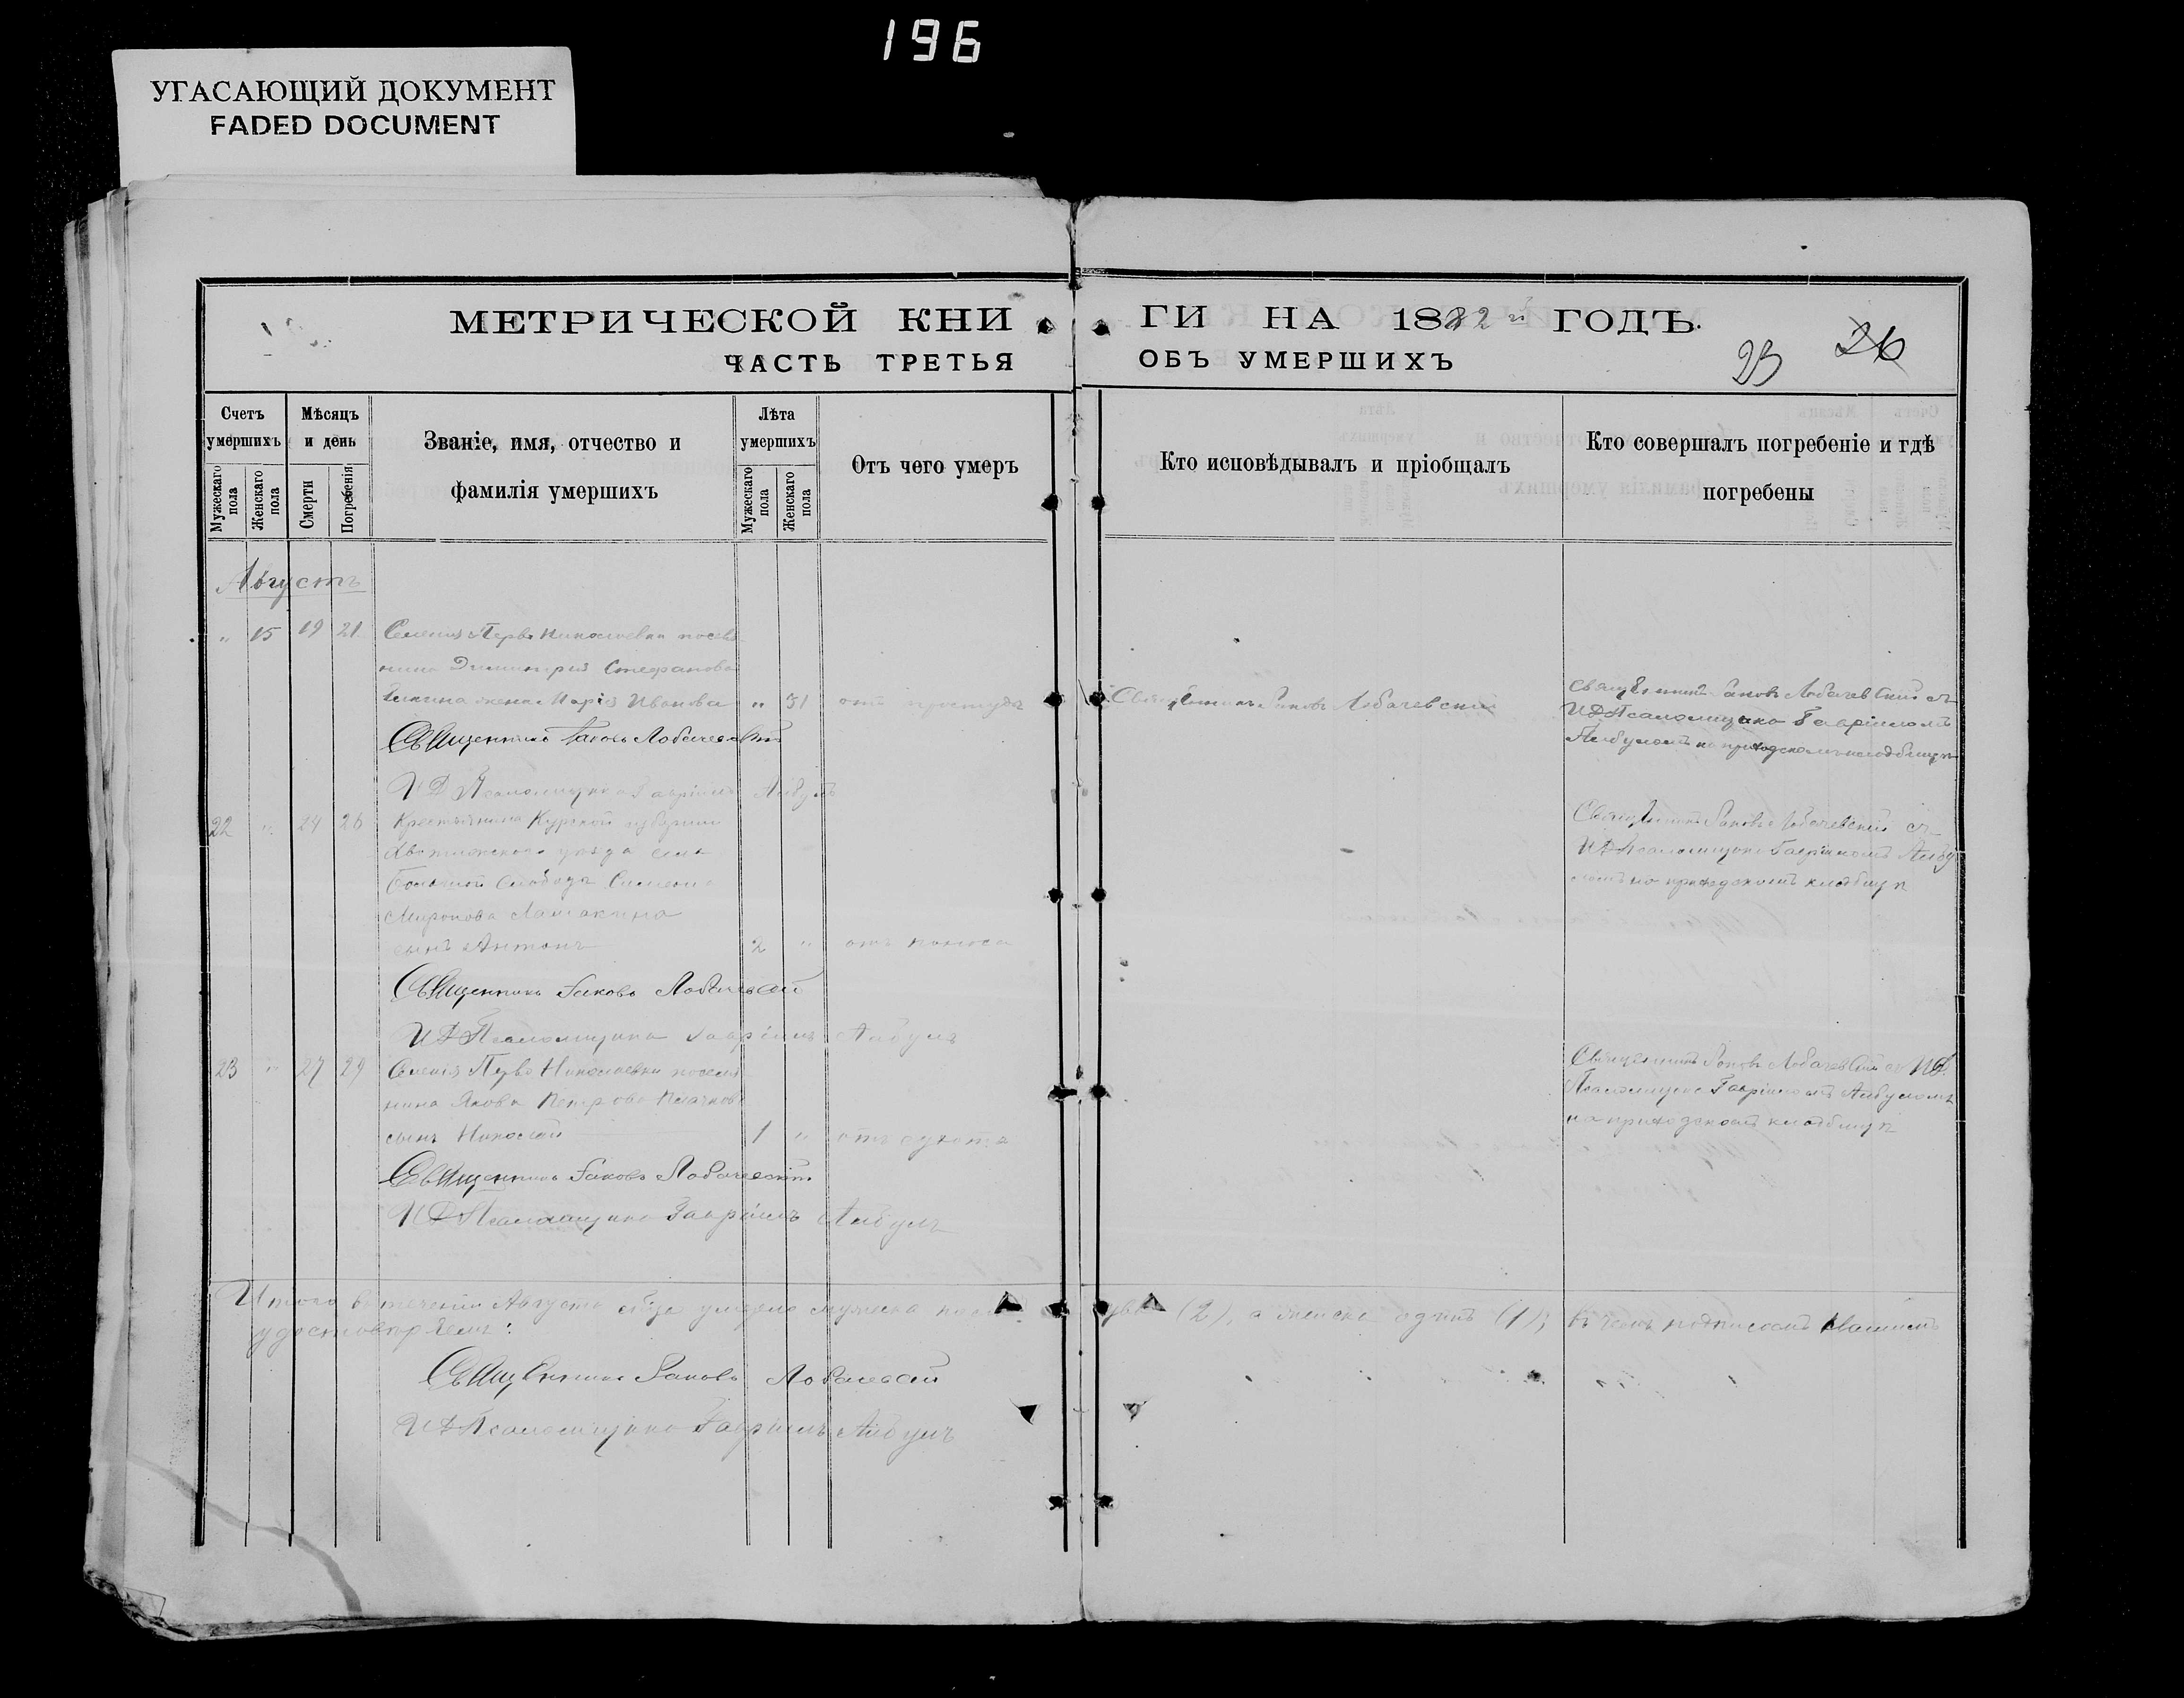 196
УГАСАЮЩИЙ ДОКУМЕНТ
FADED DOCUMENT
МЕТРИЧЕСКОЙ КНИГИ НА 1882 й ГОДЪ.
ЧАСТЬ ТРЕТЬЯ ОБЪ УМЕРШИХЪ
23 26
Счетъ умершихъ
Мужескаго пола
Женскаго пола
Мѣсяцъ и день
Смерти
Погребенія
Званіе, имя, отчество и
фамилія умершихъ
Лѣта умершихъ
Мужескаго пола
Женскаго пола
Отъ чего умеръ
Кто исповѣдывалъ и пріобщалъ
Кто совершалъ погребеніе и гдѣ
погребены
Августъ
" 15 19 21 Селенія Перво Николаевки поселя
нина Димитрія Стефанова
жена Марія Иванова " 51 отъ простуды Священникъ Іаковъ Лобачевскій
Священникъ Іаковъ Лобачевскій съ
И Д Псаломщика Гавріиломъ
Албуломъ на приходскомъ кладбищѣ
Священникъ Іаковъ Лобачевскій
И Д Псаломщика Гавріилъ Албулъ
22 " 24 26 Крестьянина Курской губерніи
уѣзда села
Большой Слободы
Миронова Лашакина
сынъ Антонъ 2 " отъ поноса
Священникъ Іаковъ Лобачевскій съ
И Д Псаломщика Гавріиломъ Албу
ломъ на приходскомъ кладбищѣ
Священникъ Іаковъ Лобачевскій
И Д Псаломщика Гавріилъ Албулъ
23 " 27 29 Селенія Перво Николаевки поселя
нина Якова Петрова
сынъ Николай 1 " отъ сухоты
Священникъ Іаковъ Лобачевскій съ И Д.
Псаломщика Гавріиломъ Албуломъ
на приходскомъ кладбищѣ
Священникъ Іаковъ Лобачевскій
И Д Псаломщика Гавріилъ Албулъ
Итого въ теченіи Августа умерло мужска пола два (2), а женска одинъ (1); въ чемъ подписомъ нашимъ
удостовѣряемъ:
Священникъ Іаковъ Лобачевскій
И Д Псаломщика Гавріилъ Албулъ